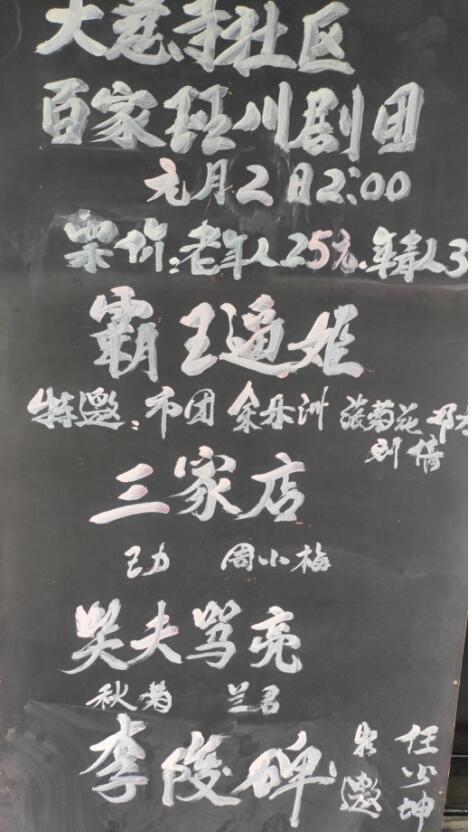 大慈寺社区
百家班川剧团
元月2日2:00
票价:老年人25元.年青人3
霸王逼姬
特邀:市团 余丹洲 张菊花 邓
刘倩
三家店
己力 周小梅
哭夫骂亮
秋菊 兰君
李陵碑
特邀 任少坤